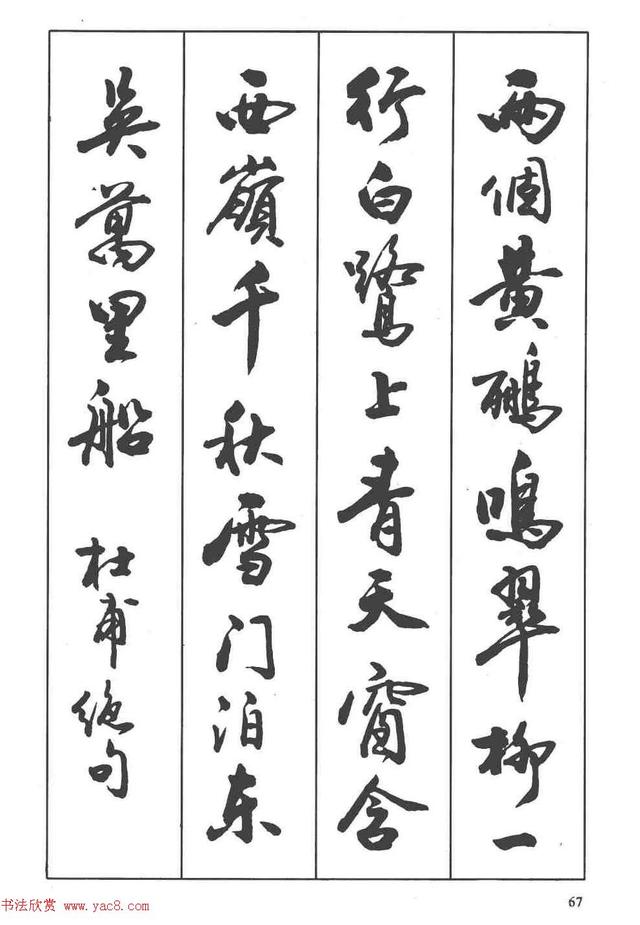 两個黄鸝鳴翠柳一
行白鷺上青天窗含
西嶺千秋雪门泊东
吴萬里船 杜甫绝句
67
书法欣赏 www.yac8.com